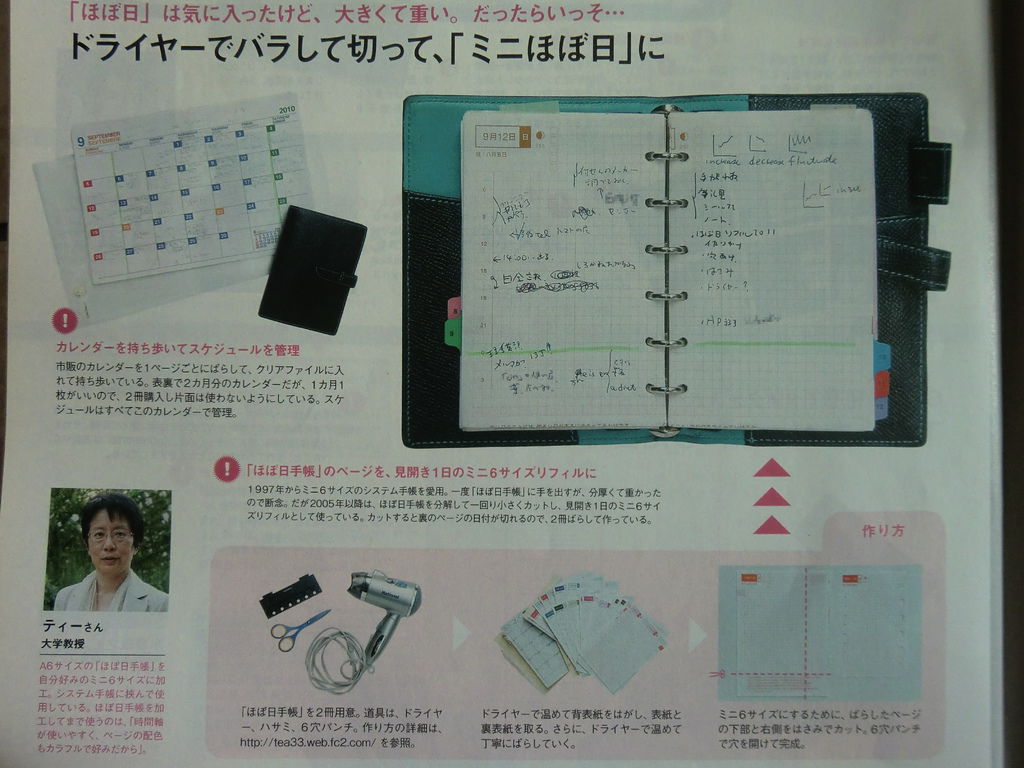 「ほぼ日」は気に入ったけど、大きくて重い。だったらいっそ…
ドライヤーでバラして切って、「ミニほぼ日」に
2010
9 SEPTEMBER
9月12日 日
increase decrease fluctuate
ノート
ドライヤー?
!
カレンダーを持ち歩いてスケジュールを管理
市販のカレンダーを1ページごとにばらして、クリアファイルに入
れて持ち歩いている。表裏で2カ月分のカレンダーだが、1カ月1
枚がいいので、2冊購入し片面は使わないようにしている。スケ
ジュールはすべてこのカレンダーで管理。
!
「ほぼ日手帳」のページを、見開き1日のミニ6サイズリフィルに
1997年からミニ6サイズのシステム手帳を愛用。一度「ほぼ日手帳」に手を出すが、分厚くて重かった
ので断念。だが2005年以降は、ほぼ日手帳を分解して一回り小さくカットし、見開き1日のミニ6サ
イズリフィルとして使っている。カットすると裏のページの日付が切れるので、2冊ばらして作っている。
ティーさん
大学教授
A6サイズの「ほぼ日手帳」を
自分好みのミニ6サイズに加
工。システム手帳に挟んで使
用している。ほぼ日手帳を加
工してまで使うのは、「時間軸
が使いやすく、ページの配色
もカラフルで好みだから」。
作り方
National
「ほぼ日手帳」を2冊用意。道具は、ドライヤ
ー、ハサミ、6穴パンチ。作り方の詳細は、
http://tea33.web.fc2.com/ を参照。
ドライヤーで温めて背表紙をはがし、表紙と
裏表紙を取る。さらに、ドライヤーで温めて
丁寧にばらしていく。
ミニ6サイズにするために、ばらしたページ
の下部と右側をはさみでカット。6穴パンチ
で穴を開けて完成。